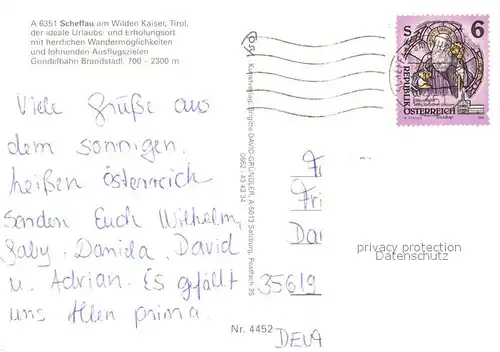 A-6351 Scheffau am Wilden Kaiser, Tirol,
der ideale Urlaubs- und Erholungsort
mit herrlichen Wandermöglichkeiten
und lohnenden Ausflugszielen
Gondelbahn Brandstadl. 700 – 2300 m
Viele Grüße aus
dem sonnigen,
heißen Österreich
senden Euch Wilhelm,
Gaby, Daniela, David
u. Adrian. Es gefällt
uns allen prima.
Kunstverlag, Brigitte DAVID-GRÜNDLER, A-5013 Salzburg, Postfach 35
0662 / 43 43 34
Nr. 4452
S 6
REPUBLIK
ÖSTERREICH
Fr
Fri
Dar
privacy protection
Datenschutz
35619
DEU